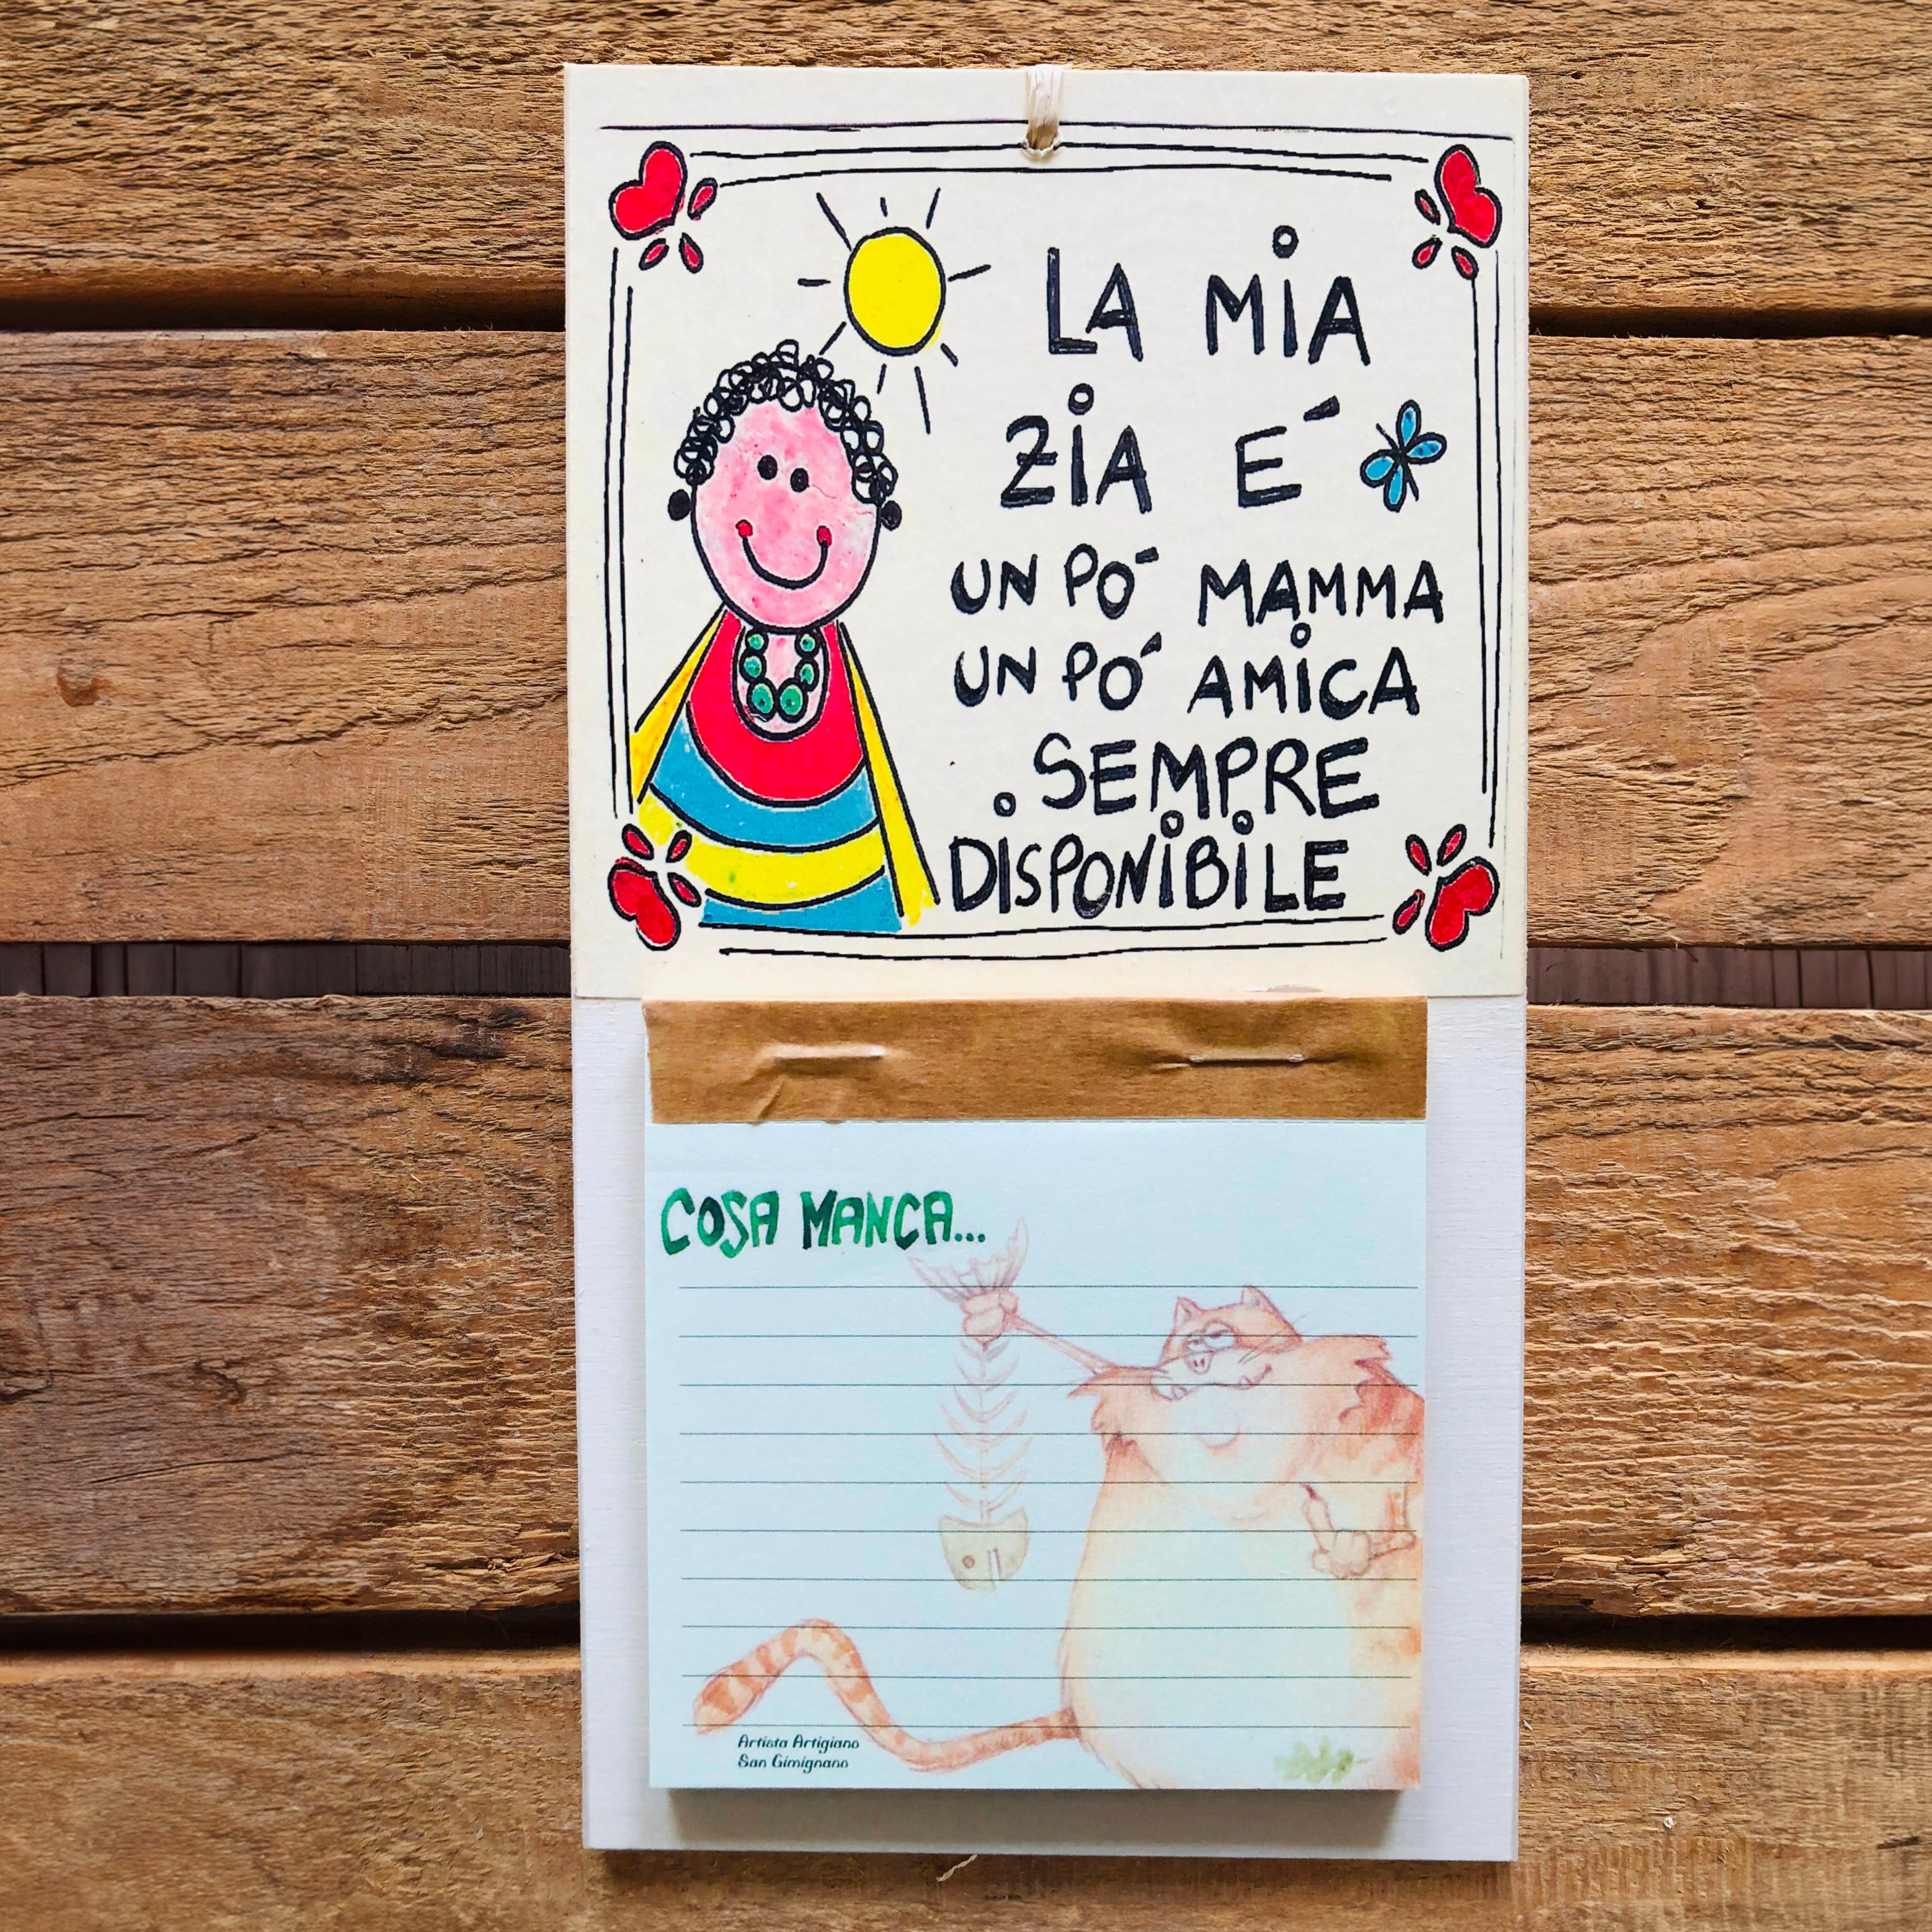 LA MiA
ZiA E´
UN PO´ MAMMA
UN PO´ AMiCA
SEMPRE
DiSPONiBiLE
COSA MANCA...
Artista Artigiano
San Gimignano